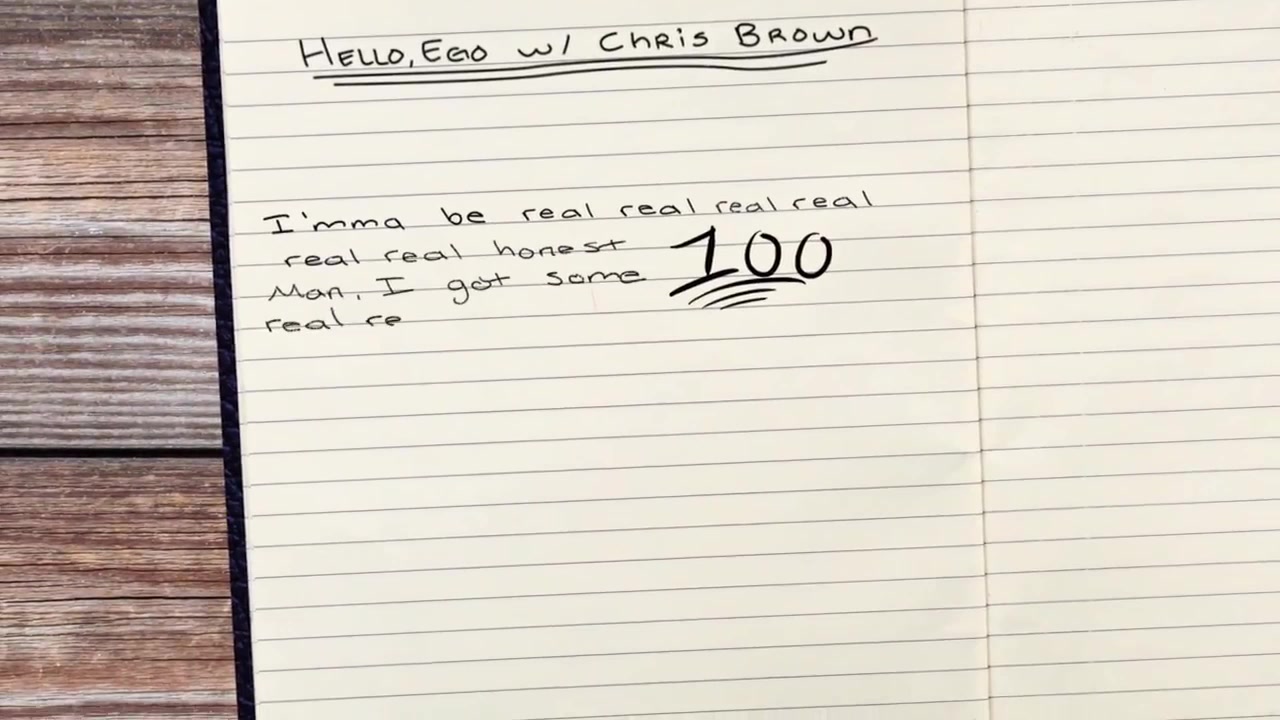 HELLO, EGO w/ Chris Brown
I'mma be real real real real
real real honest
Man, I got some
100
real re